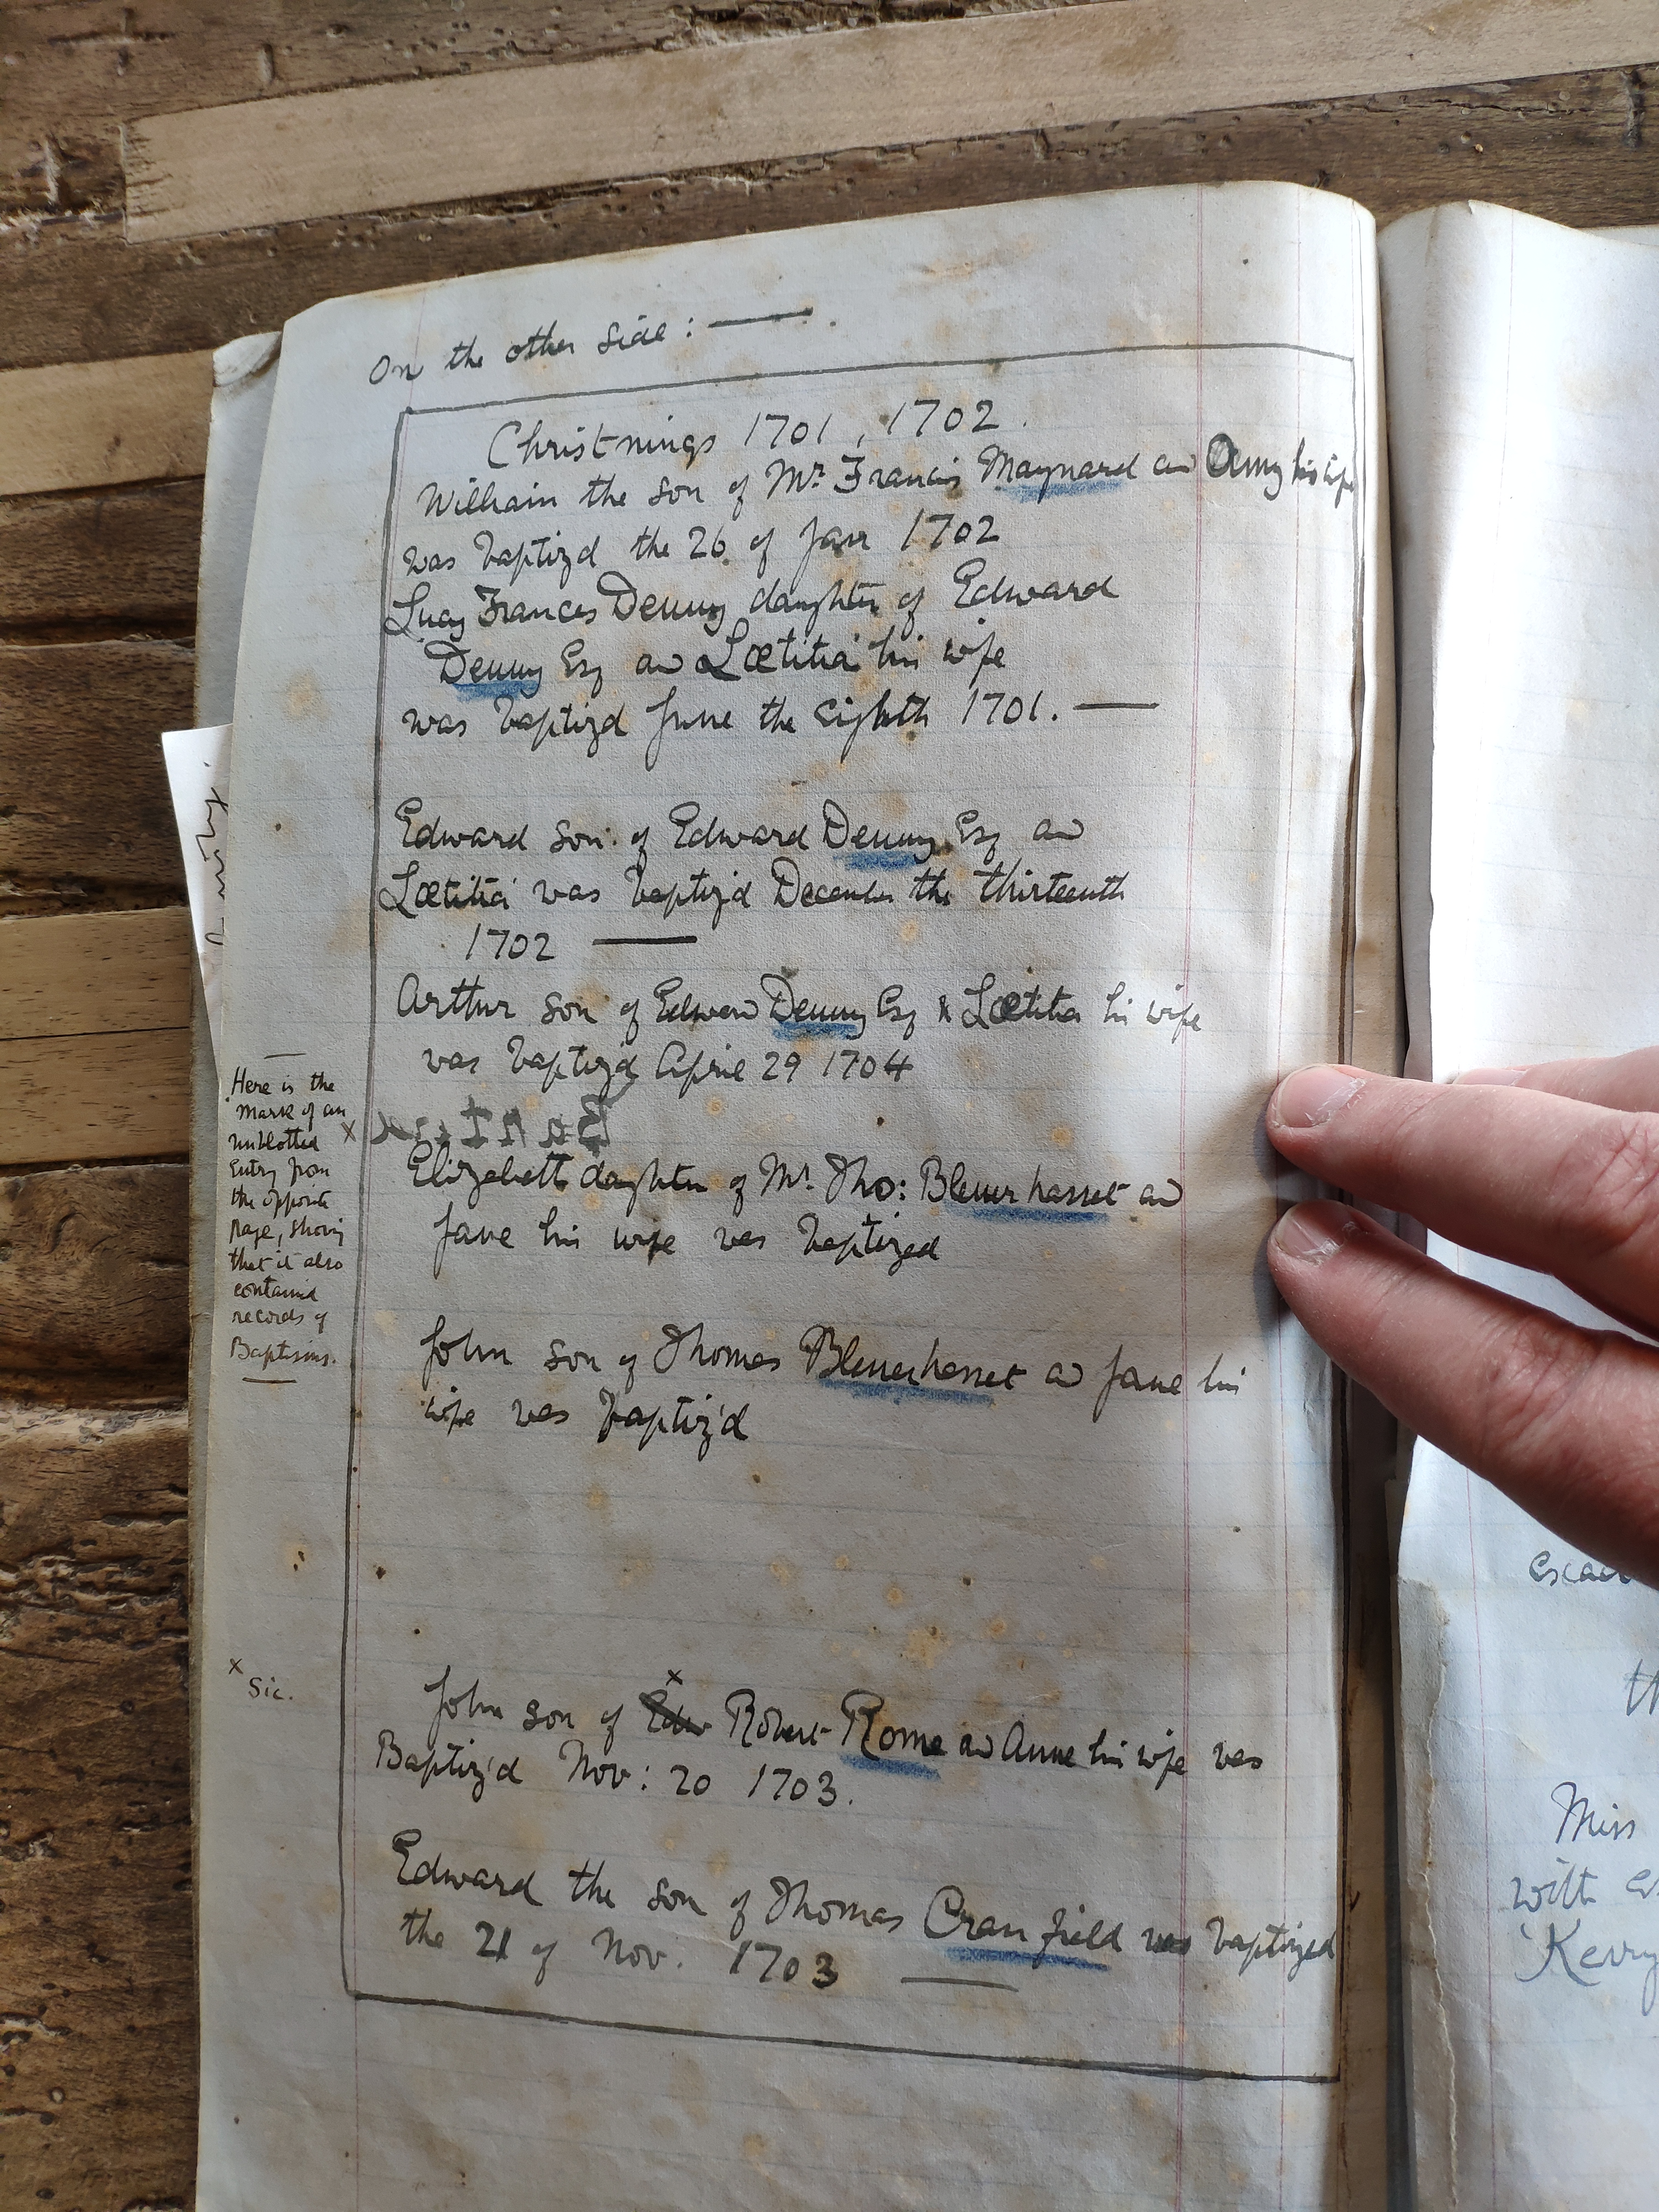 On the other side : —
Christnings 1701, 1702.
William the son of Mr. Francis Maynard and Amy his wife
was baptizd the 26 of Jan 1702
Lucy Frances Denny daughter of Edward
Denny Esq and Lætitia his wife
was baptizd June the eighth 1701. —
Edward son of Edward Denny Esq and
Lætitia was baptiz'd December the thirteenth
1702 —
Arthur son of Edward Denny Esq & Lætitia his wife
was baptiz'd April 29 1704
Here is the
mark of an
unblotted
entry from
the opposite
page, showing
that it also
contained
records of
Baptisms.
x
Elizabeth daughter of Mr. Tho: Blennerhasset and
Jane his wife was baptized
John son of Thomas Blennerhasset and Jane his
wife was baptiz'd
x Sic.
x
John son of Edw Robert Rome and Anne his wife was
Baptiz'd Nov: 20 1703.
Edward the son of Thomas Cranfield was baptized
the 21 of Nov. 1703 —
Miss
with
Kerry